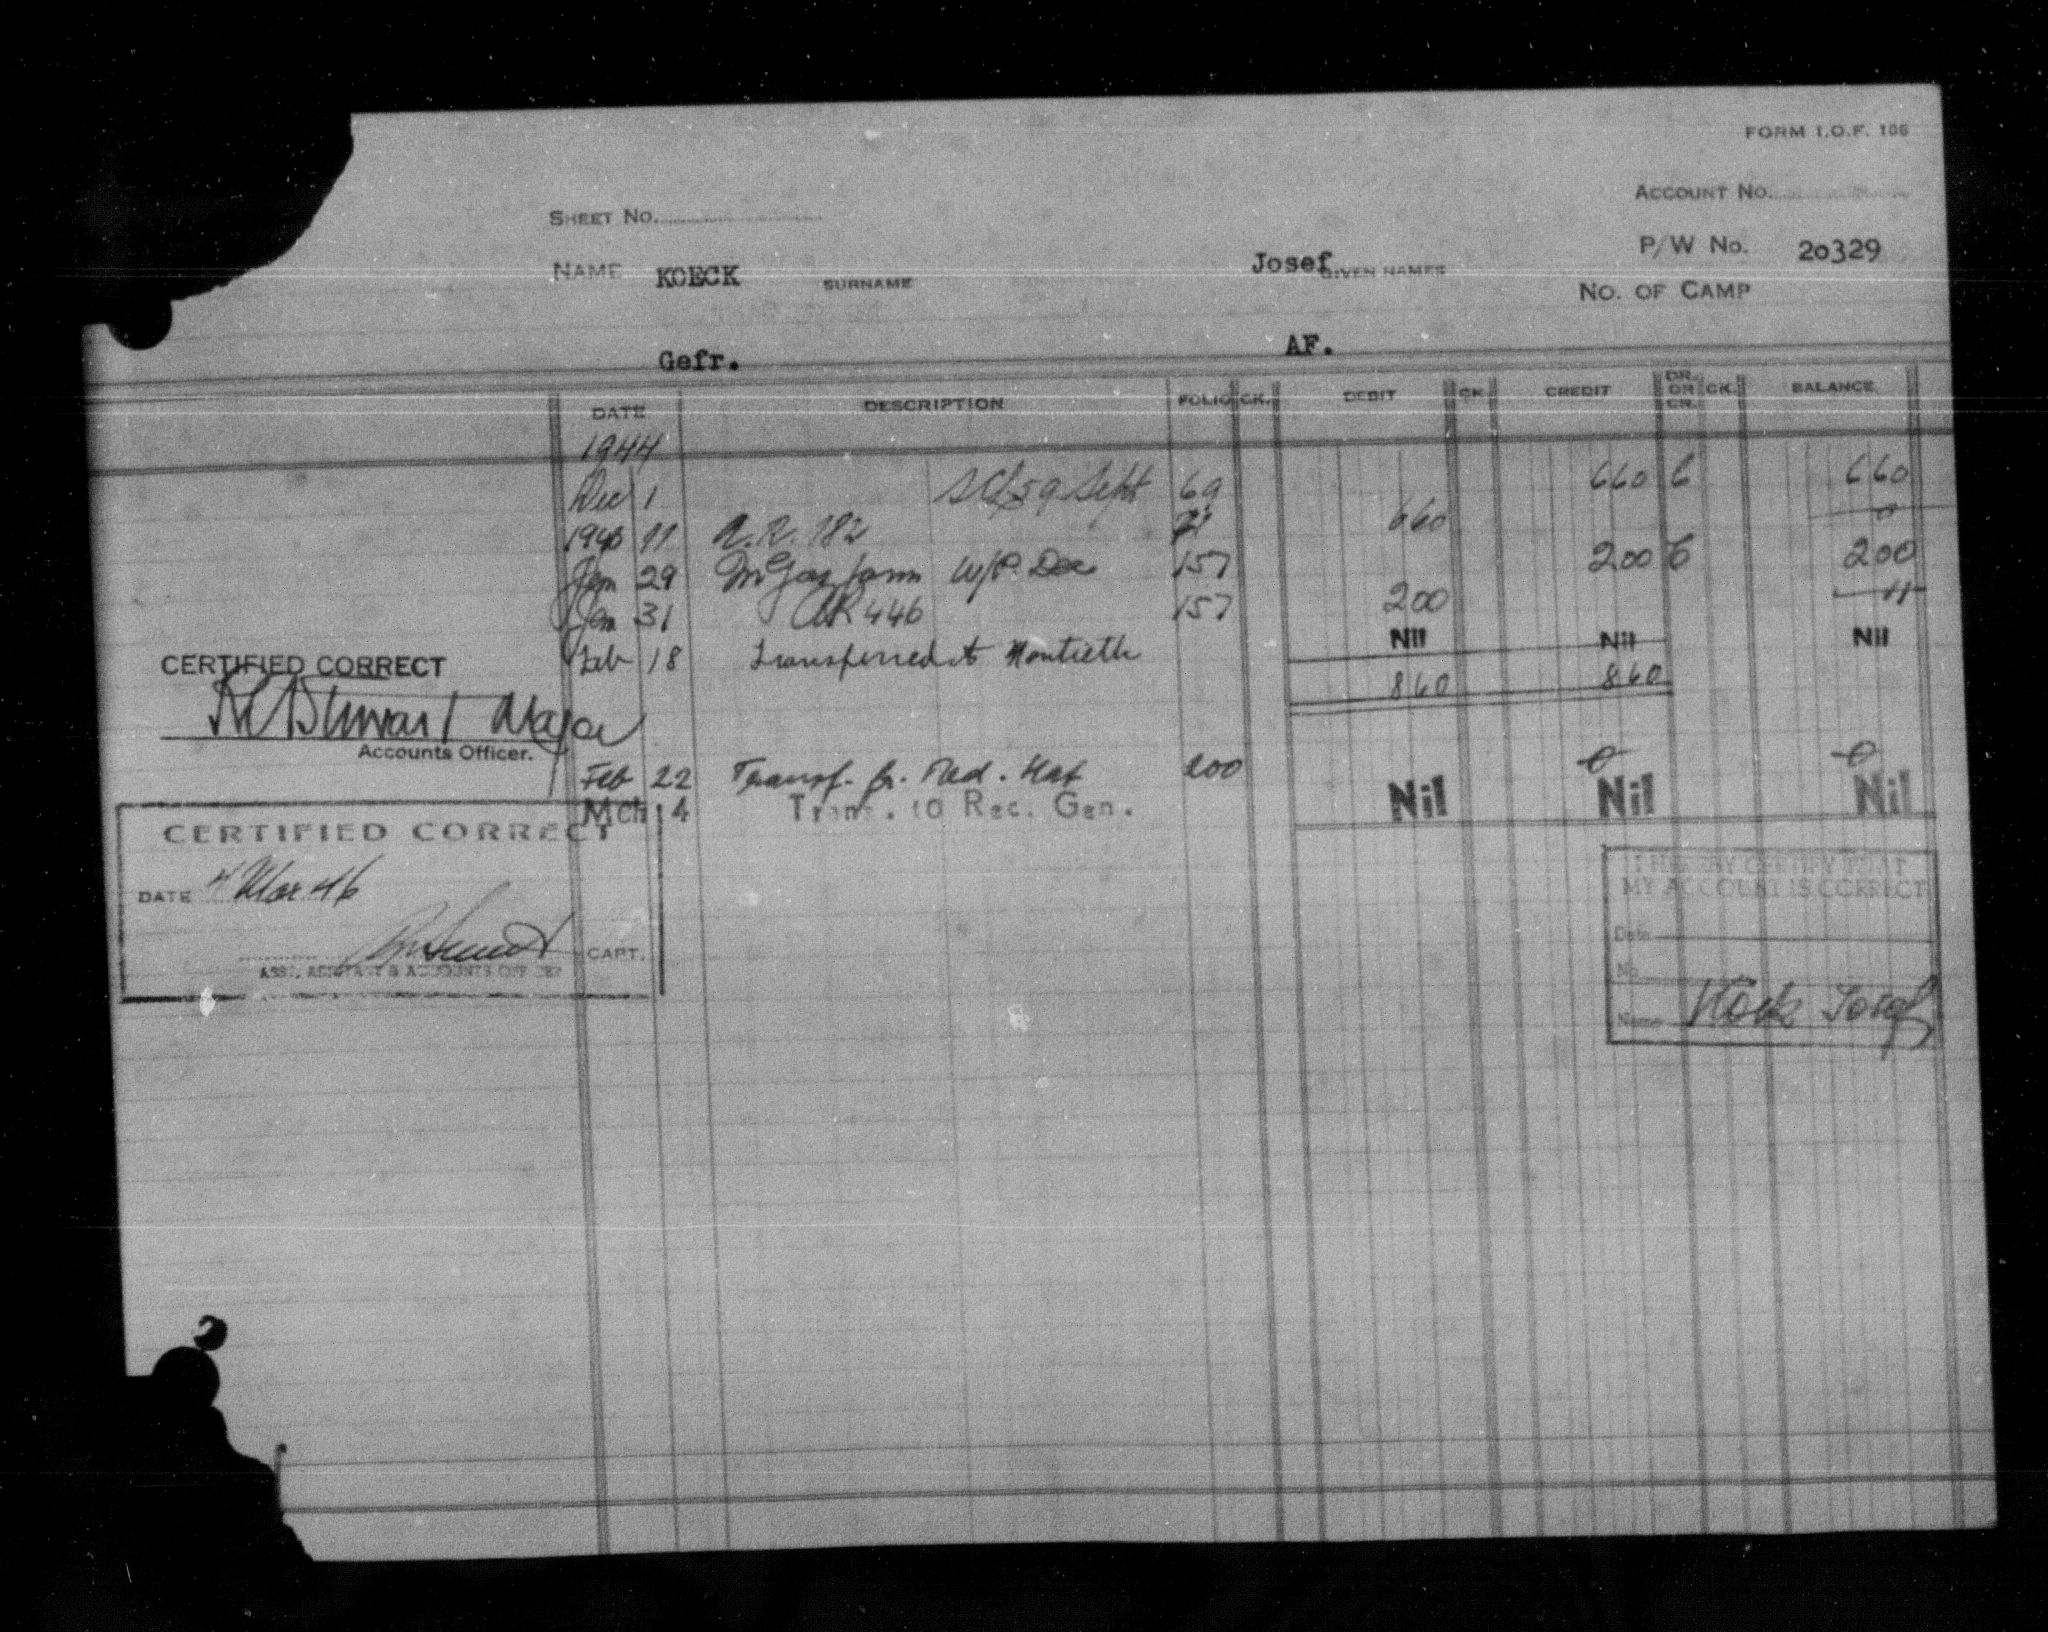 FORM I.O.F. 106
SHEET No.
ACCOUNT No.
NAME KOECK SURNAME Josef GIVEN NAMES
P/W No. 20329
No. OF CAMP
Gefr. AF.
DATE DESCRIPTION FOLIO CK. DEBIT CK. CREDIT DR. OR CR. CK. BALANCE
1944
Dec 1 59 Sept 69 660 C 660
11 A.R. 782 71 660 0
Jan 29 farm W/P. Dec 157 200 C 200
Jan 31 AR 446 157 200
Feb 18 Transferred to Montieth Nil Nil Nil
860 860
CERTIFIED CORRECT
Major
Accounts Officer.
Feb 22 Transf. fr. Med. Hat 200 0 0
Mch 4 Trans. to Rec. Gen. Nil Nil Nil
CERTIFIED CORRECT
DATE 4 Mar 46
CAPT.
ASST. ADJUTANT & ACCOUNTS OFFICER
I HEREBY CERTIFY THAT
MY ACCOUNT IS CORRECT
Date
No.
Name Köck Josef